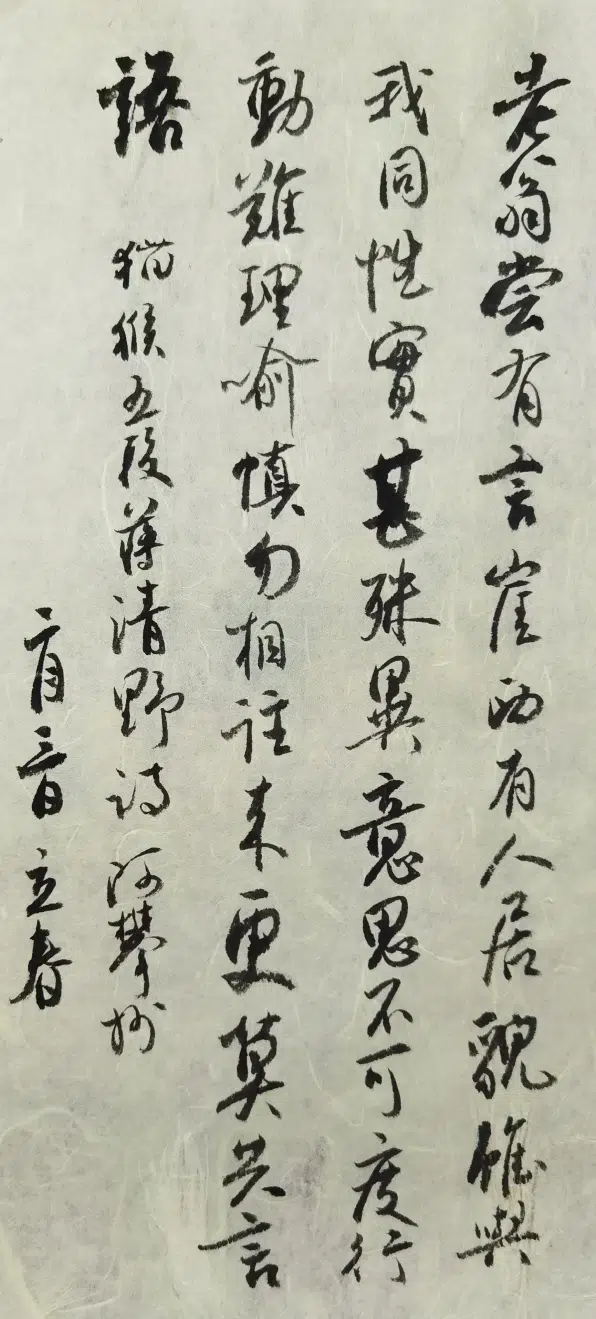 老翁嘗有言崖西有人居貌雖與
我同性實甚殊異意思不可度行
動難理喻慎勿相誰来更莫共言
語 猫猴五段蒋清野詩 阿攀抄
二月三日立春